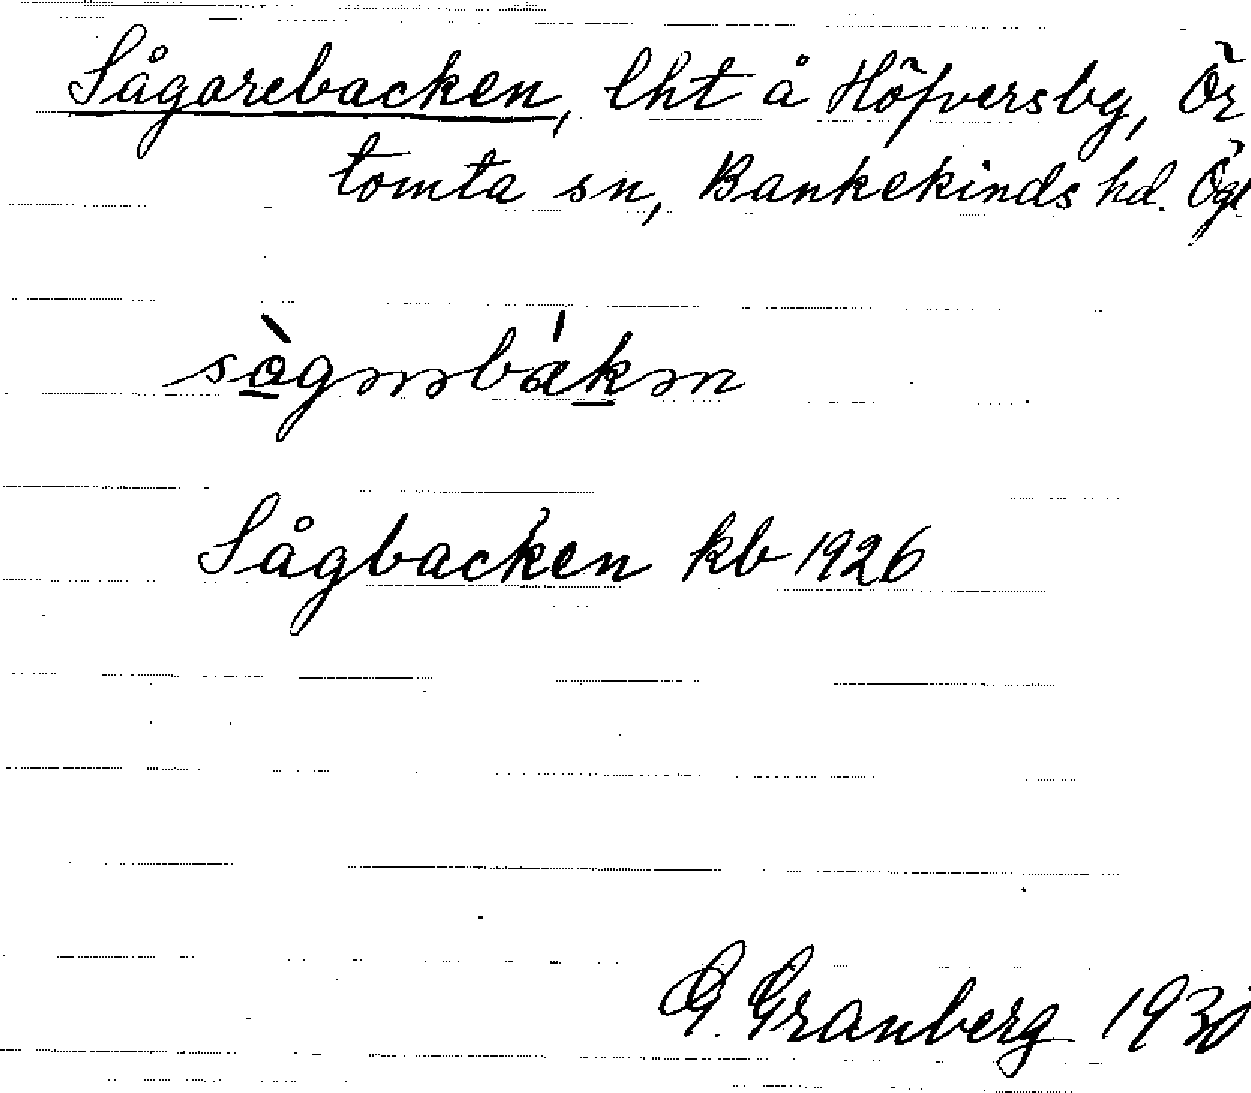 Sågarebacken, lht å Höfversby, Ör
tomta sn, Bankekinds hd. Ögl
Sågbacken kb 1926
G. Granberg